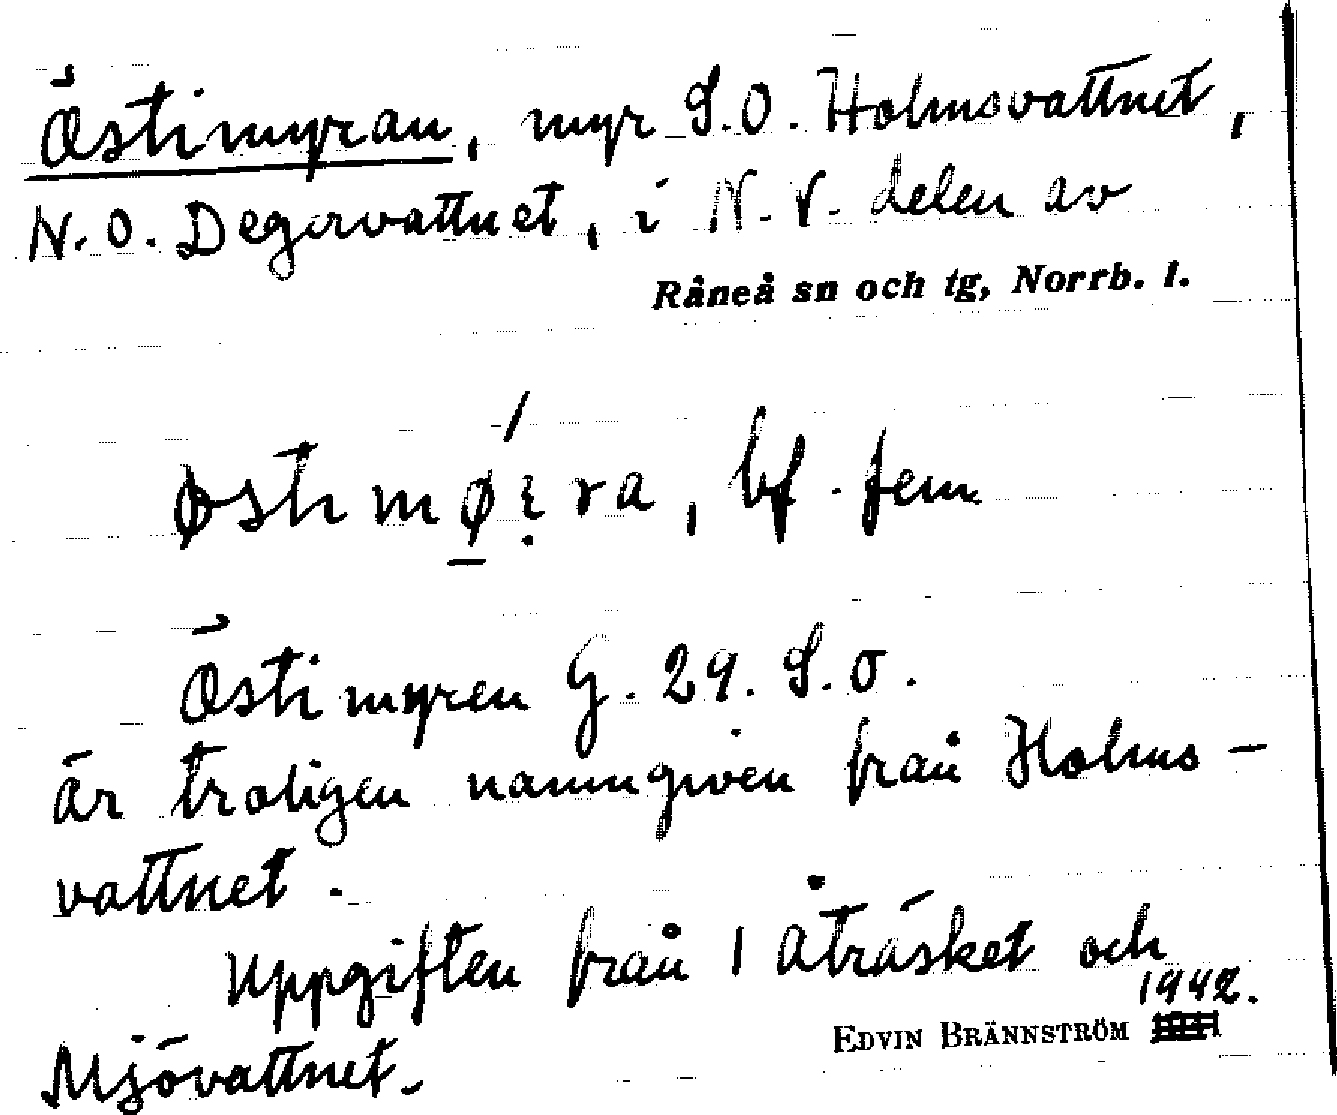 Östimyran, myr S.O. Holmsvattnet,
N.O. Degervattnet, i N.V. delen av
Råneå sn och tg, Norrb. l.
østimø̱ :ra, bf. fem
Östimyren G. 29. S.O.
är troligen namngiven från Holms-
vattnet.
Uppgiften från 1 Åträsket och
Mjövattnet.
EDVIN BRÄNNSTRÖM 1942.